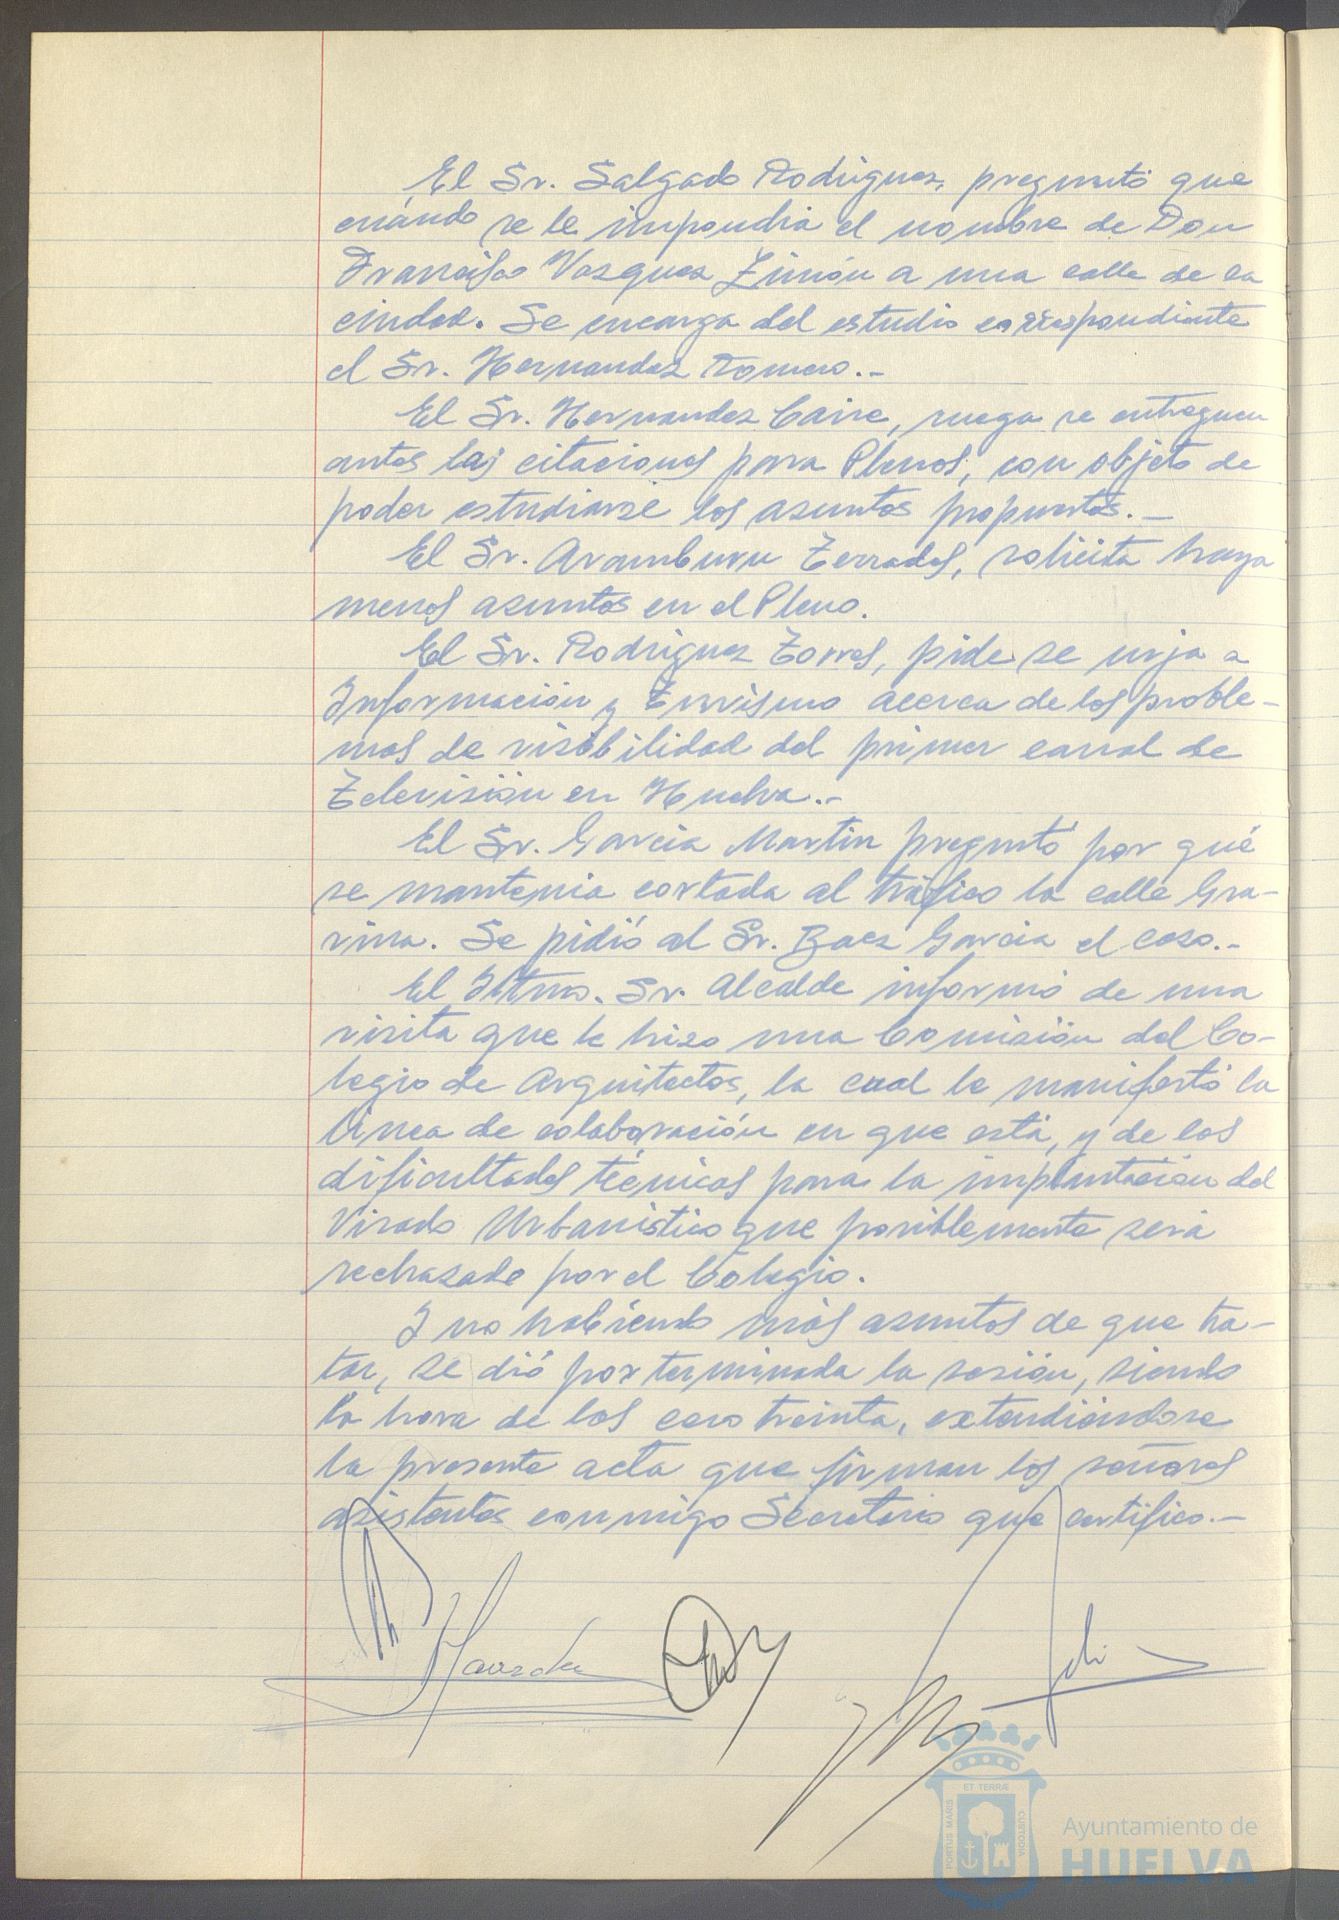 El Sr. Salgado Rodriguez, preguntó que
cuándo se le impondria el nombre de Don
Francisco Vazquez Limón a una calle de la
ciudad. Se encarga del estudio correspondiente
el Sr. Hernandez Romero.-
El Sr. Hernandez Caire, ruega se entreguen
antes las citaciones para Plenos, con objeto de
poder estudiarse los asuntos propuestos.-
El Sr. Aramburu Terrades, solicita haya
menos asuntos en el Pleno.
El Sr. Rodriguez Torres, pide se urja a
Información y Turismo acerca de los proble-
mas de visibilidad del primer canal de
Televisión en Huelva.-
El Sr. Garcia Martin preguntó por qué
se mantenia cortada al tráfico la calle Gra-
vina. Se pidió al Sr. Baez Garcia el caso.-
El Iltmo. Sr. Alcalde informó de una
visita que le hizo una Comisión del Co-
legio de Arquitectos, la cual le manifestó la
linea de colaboración en que está, y de las
dificultades técnicas para la implantación del
Visado Urbanistico que posiblemente será
rechazado por el Colegio.
Y no habiendo más asuntos de que tra-
tar, se dió por terminada la sesión, siendo
la hora de las cero treinta, extendiéndose
la presente acta que firman los señores
asistentes conmigo Secretario que certifico.-
PORTUS MARIS
ET TERRÆ
CUSTODIA
Ayuntamiento de
HUELVA